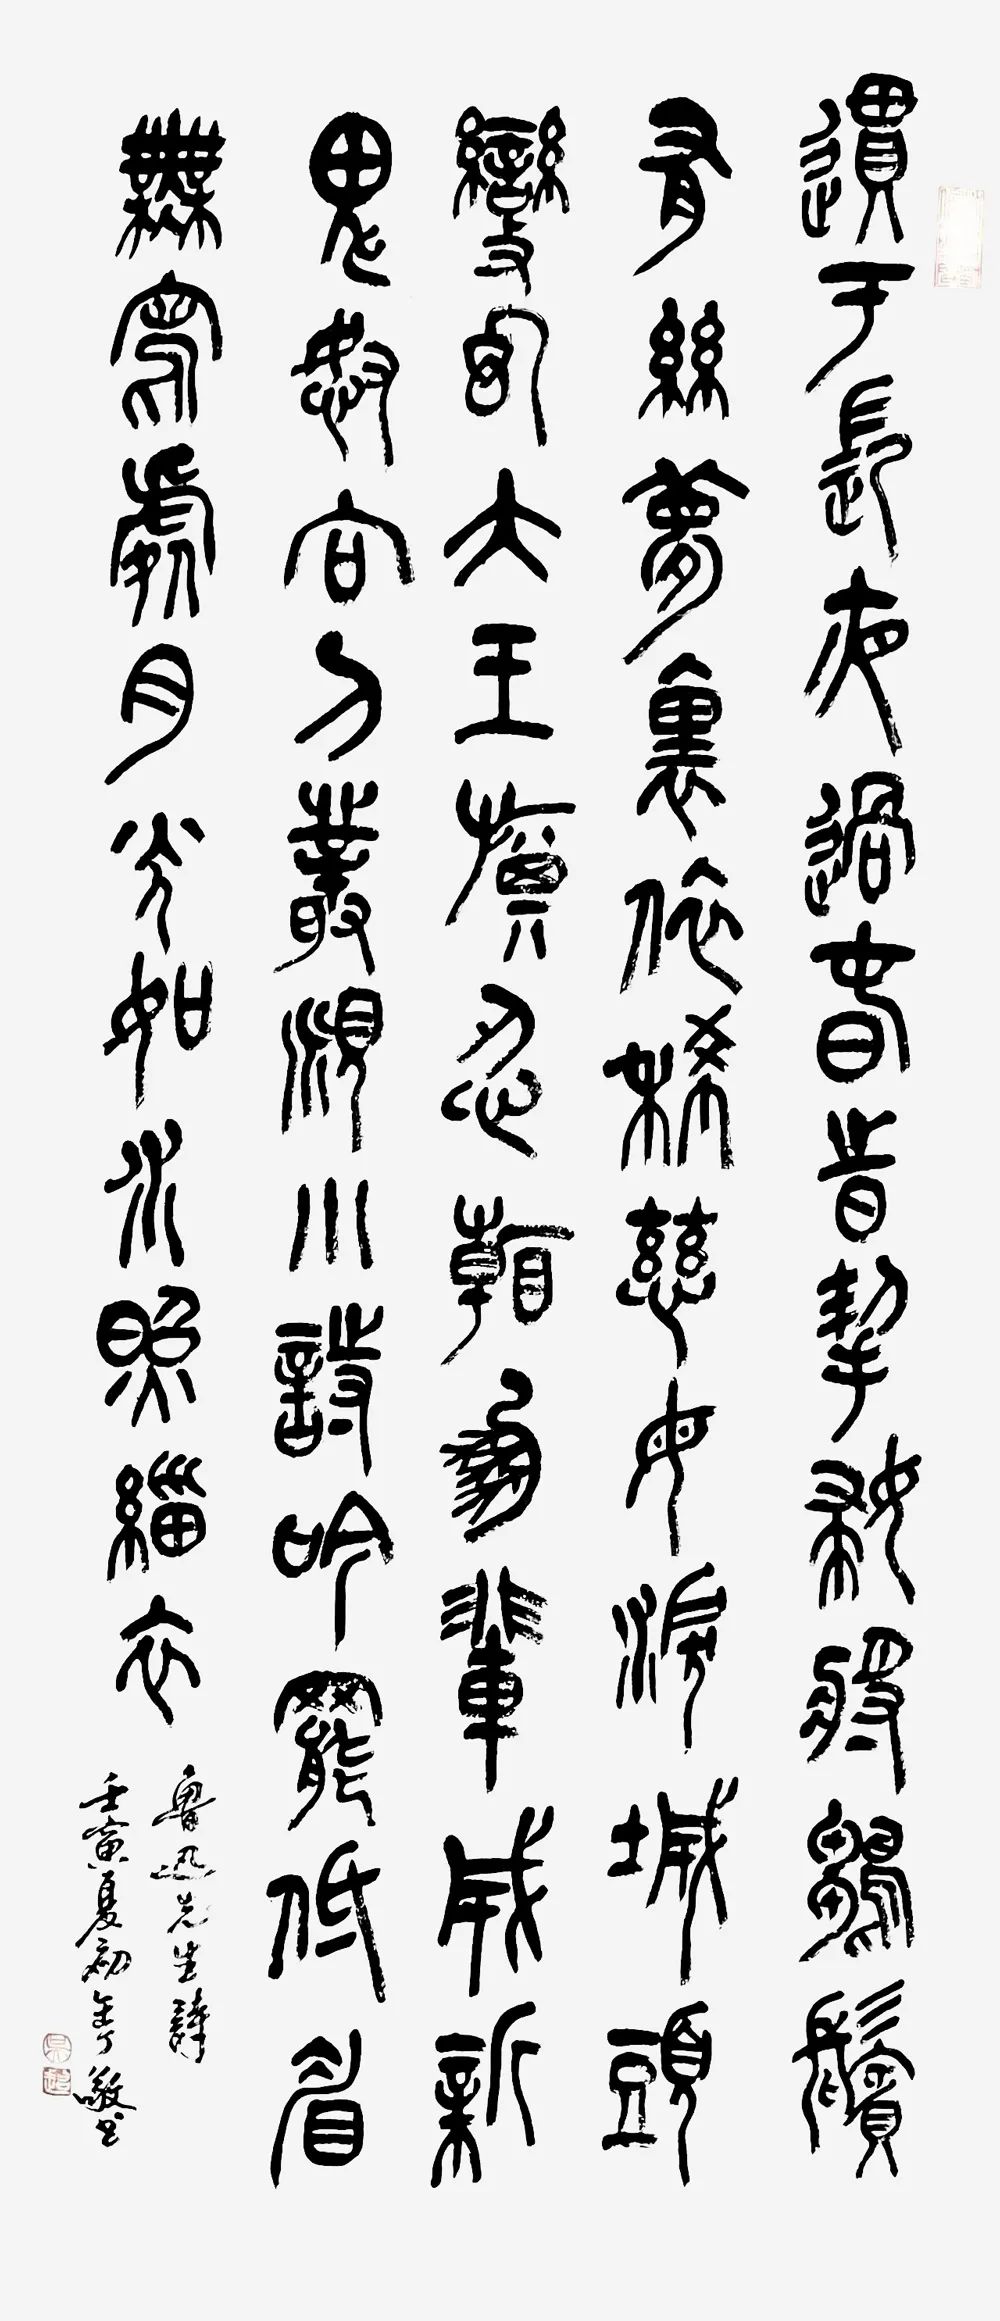 遦于長夜過春旹挈婦將鶵鬢
有絲夢裏依稀慈母淚城頭
變幻大王旗忍看朋輩成新
鬼怒向刀叢覓小詩吟罷低眉
無寫處月光如水照緇衣
魯迅先生詩
壬寅夏初